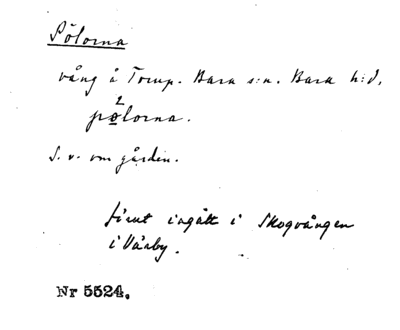 Pölorna
vång å Torup. Bara s:n. Bara h:d.
2
pølorna.
S. v. om gården.
förut ingått i Skogvången
i Värby.
Nr 5524.